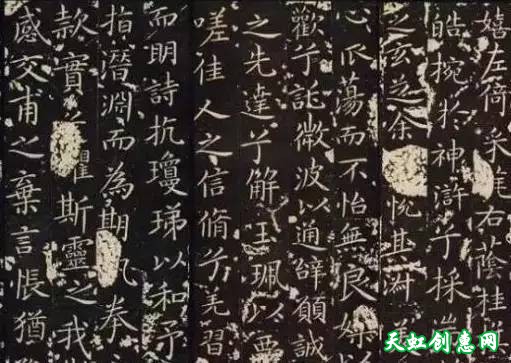 嬉左倚采旄右蔭桂
皓捥於神滸兮採湍
之玄芝余悅其淑
心蕩而不怡無良媒
歡兮託微波以通辭願誠
之先達兮解玉珮以要
嗟佳人之信脩兮羌習
而明詩抗瓊珶以和予
指潛淵而為期執拳
款實懼斯靈之我
感交甫之棄言悵猶
天虹创意网